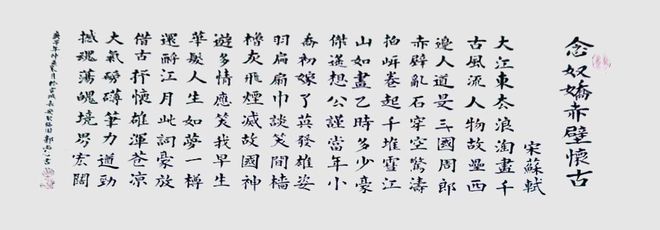 念奴嬌赤壁懷古
宋蘇軾
大江東去浪淘盡千
古風流人物故壘西
邊人道是三國周郎
赤壁亂石穿空驚濤
拍岸卷起千堆雪江
山如畫乙時多少豪
傑遙想公謹當年小
喬初嫁了英發雄姿
羽扇綸巾談笑間檣
櫓灰飛煙滅故國神
遊多情應笑我早生
華髮人生如夢一樽
還酹江月此詞豪放
借古抒懷雄渾蒼涼
大氣磅礴筆力遒勁
撼魂蕩魄境界宏闊